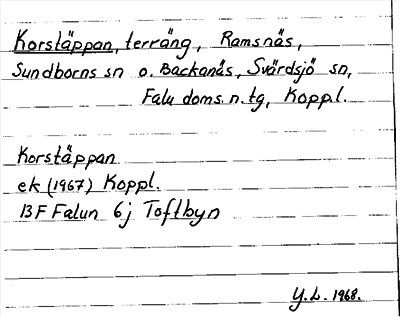 Korstäppan, terräng, Ramsnäs,
Sundborns sn o. Backanäs, Svärdsjö sn,
Falu doms. n. tg, Koppl.
Korstäppan
ek (1967) Koppl.
13 F Falun 6j Toftbyn
Y.L. 1968.